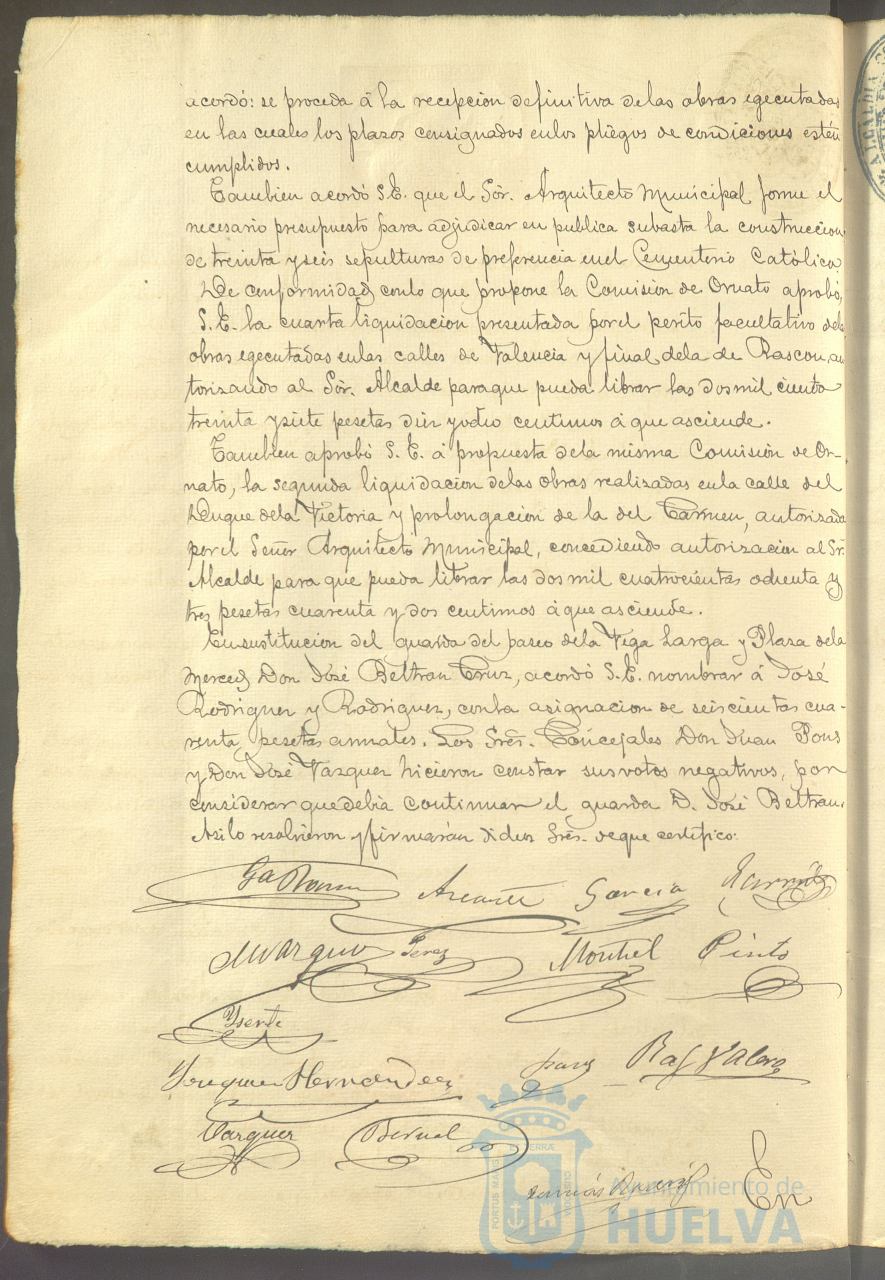 acordó: se proceda á la recepcion definitiva delas obras egecutadas
en las cuales los plazos consignados enlos pliegos de condiciones estén
cumplidos.
Tambien acordó S.E. que el Sór. Arquitecto Municipal forme el
necesario presupuesto para adjudicar en publica subasta la construccion
de treinta y seis sepulturas de preferencia enel Cementerio Católico.
De conformidad conlo que propone la Comision de Ornato aprobó,
S.E. la cuarta liquidacion presentada porel perito facultativo delas
obras egecutadas enlas calles de Valencia y final dela de Rascon, au
torizando al Sór. Alcalde paraque pueda librar las dosmil ciento
treinta y siete pesetas diez y ocho centimos á que asciende.
Tambien aprobó S.E. á propuesta dela misma Comisión de Or-
nato, la segunda liquidacion delas obras realizadas enla calle del
Duque dela Victoria y prolongacion de la del Carmen, autorizada
porel Señor Arquitecto Municipal, concediendo autorizacion al Sr.
Alcalde para que pueda librar las dos mil cuatrocientas ochenta y
tres pesetas cuarenta y dos centimos á que asciende.
En sustitucion del guarda del paseo dela Vega Larga y Plaza dela
Merced Don José Beltran Cruz, acordó S.E. nombrar á José
Rodriguez y Rodriguez, conla asignacion de seiscientas cua-
renta pesetas annales. Los Sres. Concejales Don Juan Pons
y Don José Vazquez hicieron constar sus votos negativos, por
considerar que debia continuar el guarda D. José Beltran.
Asi lo resolvieron y firmarán dichos Sres. de que certifico:
García
Marquez Perez Montiel Pinto
Ysern
Joaquin Hernandez Pons Raf Valero
Vazquez Bernal
En
Ayuntamiento de
HUELVA
PORTUS MARIS
ALCALDIA